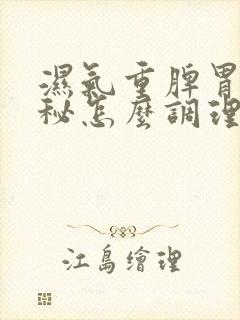 濕氣重脾胃
秘怎麼調理
江島繪理